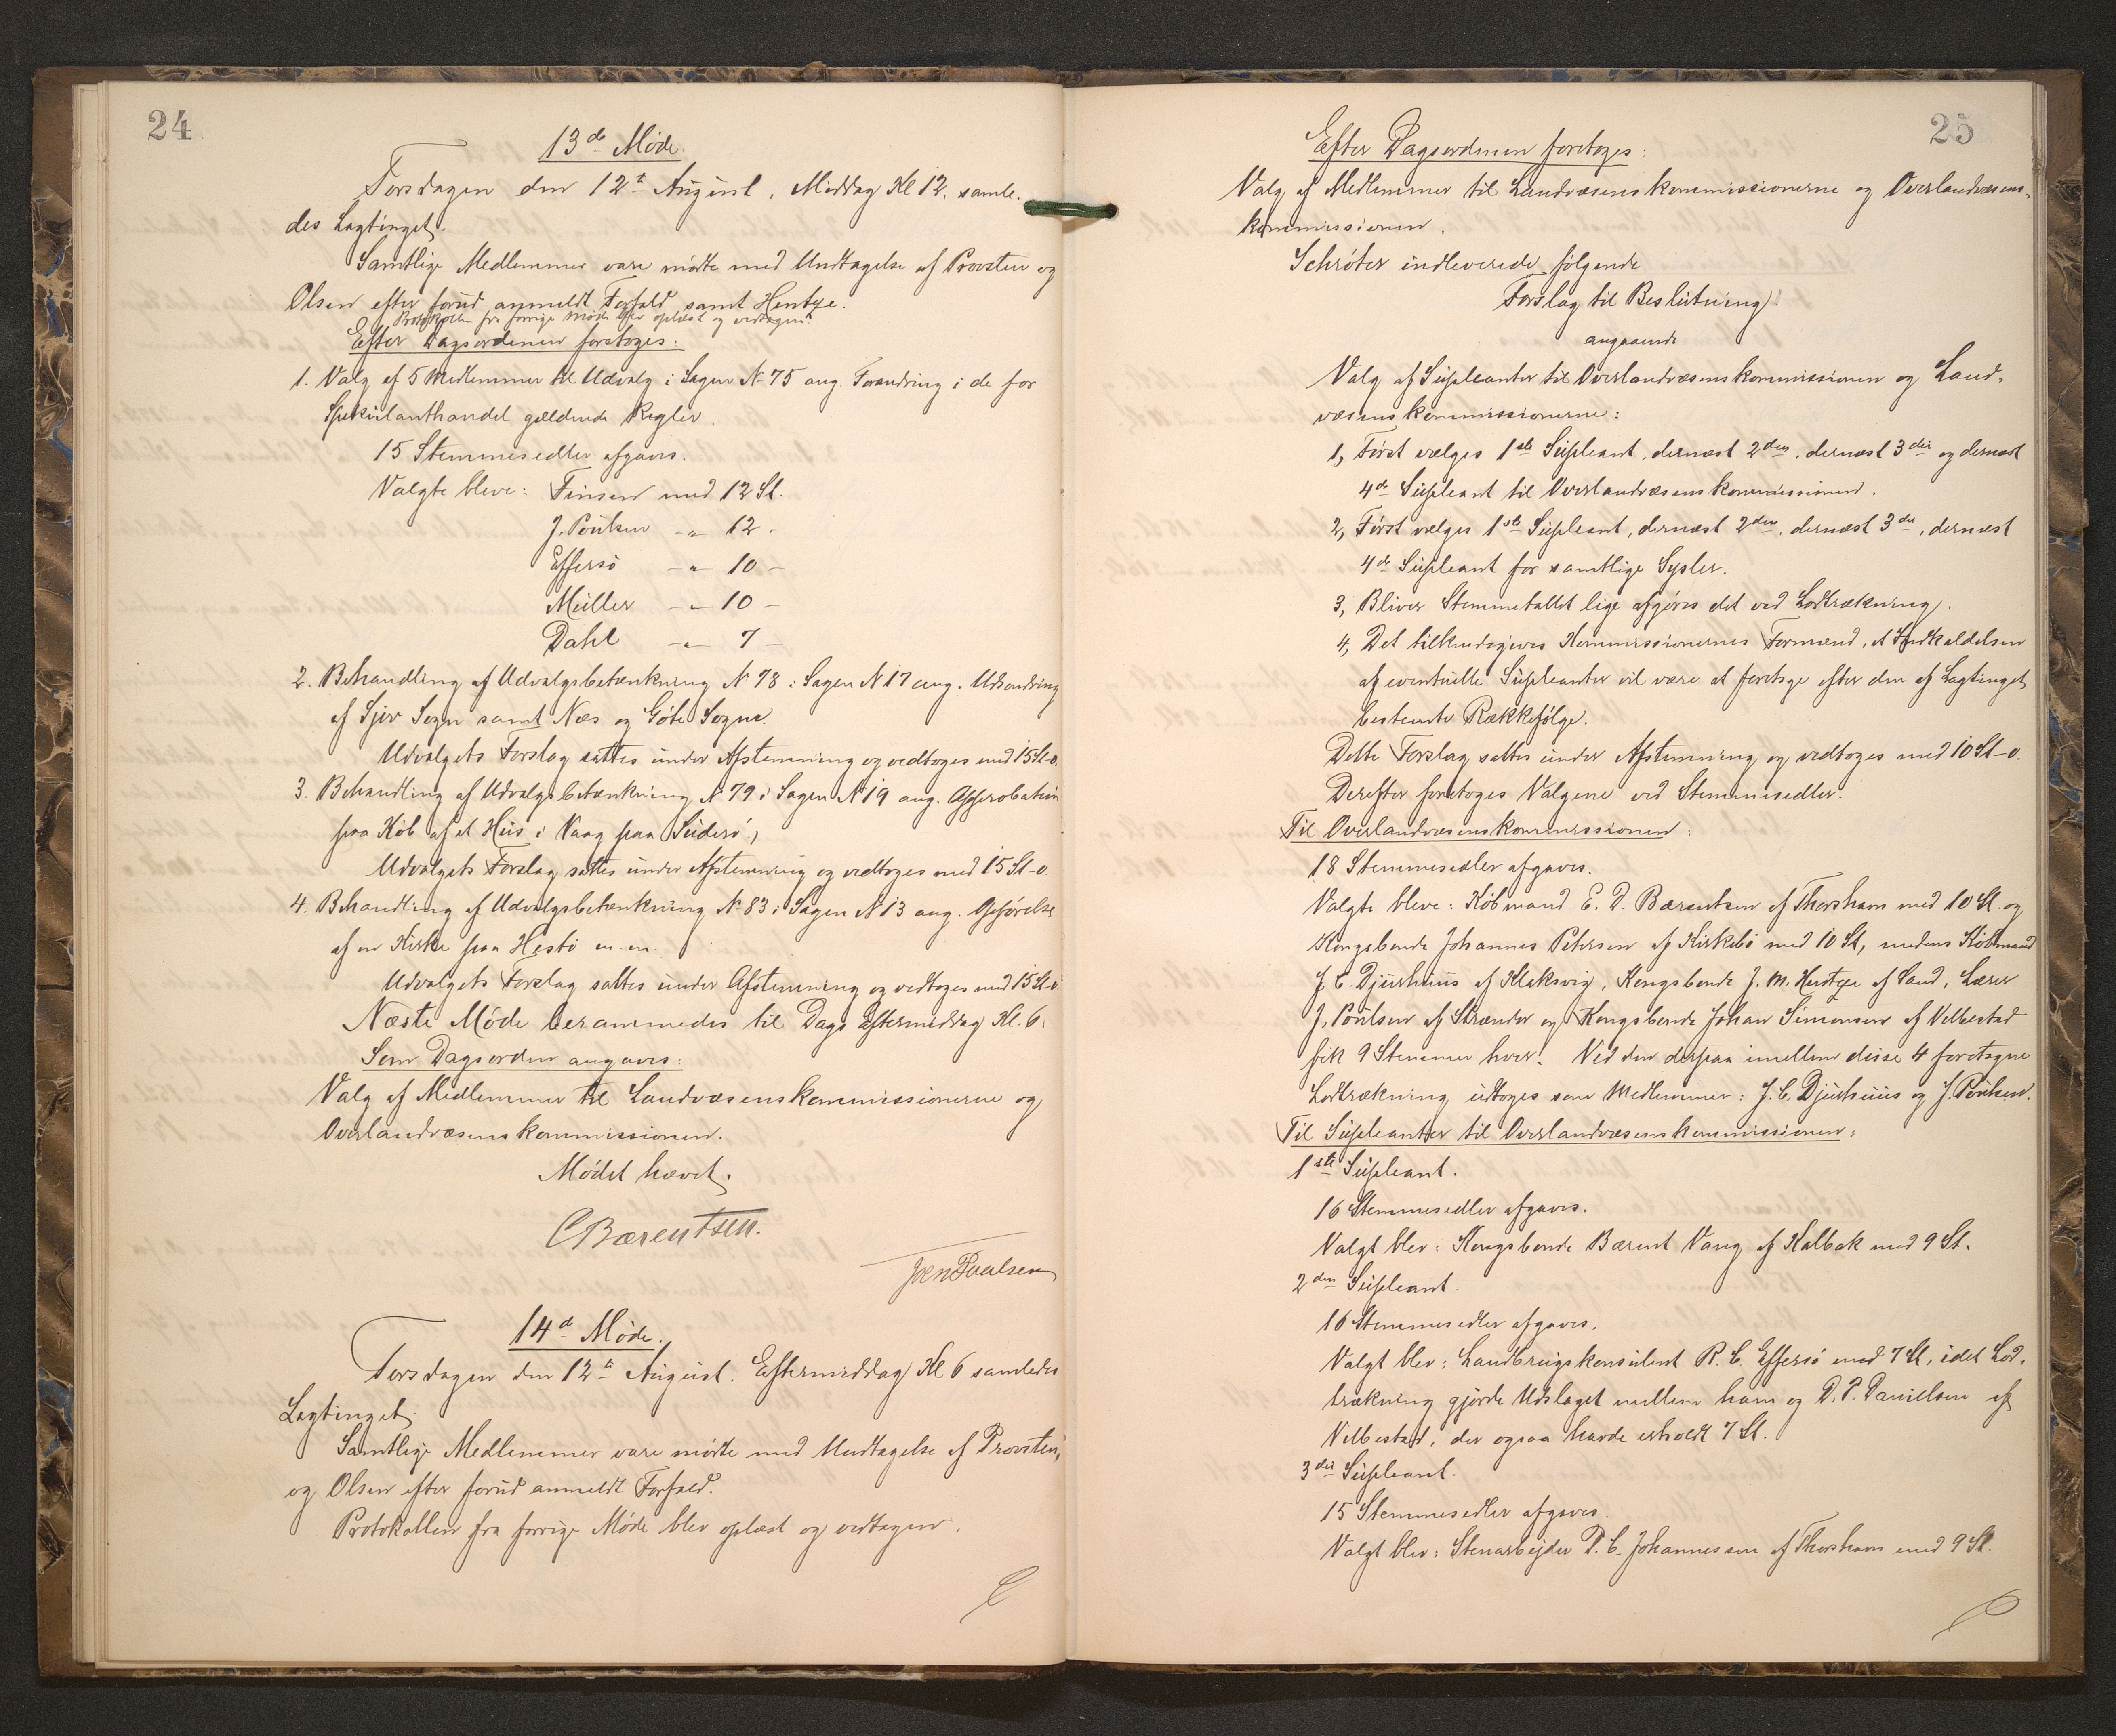 24
13de Møde.
Torsdagen den 12te August, Middag Kl 12, samle-
des Lagtinget.
Samtlige Medlemmer vare mødte med Undtagelse af Provsten og
Olsen efter forud anmeldt Forfald samt Hentze.
Protokollen fra forrige Møde blev oplæst og vedtagen.
Efter Dagsordenen foretoges:
1. Valg af 5 Medlemmer til Udvalg i Sagen № 75 ang. Forandring i de for
Spekulanthandel gældende Regler.
15 Stemmesedler afgaves.
Valgte bleve: Finsen med 12 St.
J. Poulsen -"- 12 -
Effersø -"- 10 -
Müller -"- 10 -
Dahl -"- 7 -
2. Behandling af Udvalgsbetænkning № 78 i Sagen № 17 ang. Udsondring
af Sjov Sogn samt Næs og Gøte Sogne.
Udvalgets Forslag sattes under Afstemning og vedtoges med 15 St-0.
3. Behandling af Udvalgsbetænkning № 79 i Sagen № 19 ang. Approbation
paa Køb af et Hus i Vaag paa Suderø,
Udvalgets Forslag sattes under Afstemning og vedtoges med 15 St-0.
4. Behandling af Udvalgsbetænkning № 83 i Sagen № 13 ang. Opførelse
af en Kirke paa Hestø m.m.
Udvalgets Forslag sattes under Afstemning og vedtoges med 15 St-0
Næste Møde berammedes til Dags Eftermiddag Kl. 6.
Som Dagsorden angaves:
Valg af Medlemmer til Landvæsenskommissionerne og
Overlandvæsenskommissionen.
Mødet hævet.
CBærentsen.
Joen Poulsen
14de Møde.
Torsdagen den 12te August. Eftermiddag Kl 6 samledes
Lagtinget.
Samtlige Medlemmer vare mødte med Undtagelse af Provsten,
og Olsen efter forud anmeldt Forfald.
Protokollen fra forrige Møde blev oplæst og vedtagen.
25
Efter Dagsordenen foretoges:
Valg af Medlemmer til Landvæsenskommissionerne og Overlandvæsens-
kommissionen.
Schrøter indleverede følgende
Forslag til Beslutning
angaaende
Valg af Supleanter til Overlandvæsenskommissionen og Land-
væsenskommissionerne:
1, Først vælges 1ste Supleant, dernæst 2den, dernæst 3die og dernæst
4de Supleant til Overlandvæsenskommissionen.
2, Først vælges 1ste Supleant, dernæst 2den, dernæst 3die, dernæst
4de Supleant for samtlige Sysler.
3, Bliver Stemmetallet lige afgøres det ved Lodtrækning.
4, Det tilkendegives Kommissionernes Formænd, at Indkaldelsen
af eventuelle Supleanter vil være at foretage efter den af Lagtinget
bestemte Rækkefølge.
Dette Forslag sattes under Afstemning og vedtoges med 10 St-0.
Derefter foretoges Valgene ved Stemmesedler.
Til Overlandvæsenskommissionen:
18 Stemmesedler afgaves.
Valgte bleve: Købmand E. D. Bærentsen af Thorshavn med 10 St. og
Kongsbonde Johannes Petersen af Kirkebø med 10 St, medens Købmand
J. C. Djurhuus af Klaksvig, Kongsbonde J. M. Hentze af Sand, Lærer
J. Poulsen af Strænder og Kongsbonde Johan Simonsen af Velbestad
fik 9 Stemmer hver. Ved den derpaa imellem disse 4 foretagne
Lodtrækning udtoges som Medlemmer: J. C. Djurhuus og J. Poulsen.
Til Supleanter til Overlandvæsenskommissionen:
1ste Supleant.
16 Stemmesedler afgaves.
Valgt blev: Kongsbonde Bærent Vang af Kalbak med 9 St.
2den Supleant.
16 Stemmesedler afgaves.
Valgt blev: Landbrugskonsulent R. C. Effersø med 7 St, idet Lod-
trækning gjorde Udslaget mellem ham og D. P. Danielsen af
Velbestad, der ogsaa havde erholdt 7 St.
3die Supleant.
15 Stemmesedler afgaves.
Valgt blev: Stenarbejder P. C. Johannessen af Thorshavn med 9 St.